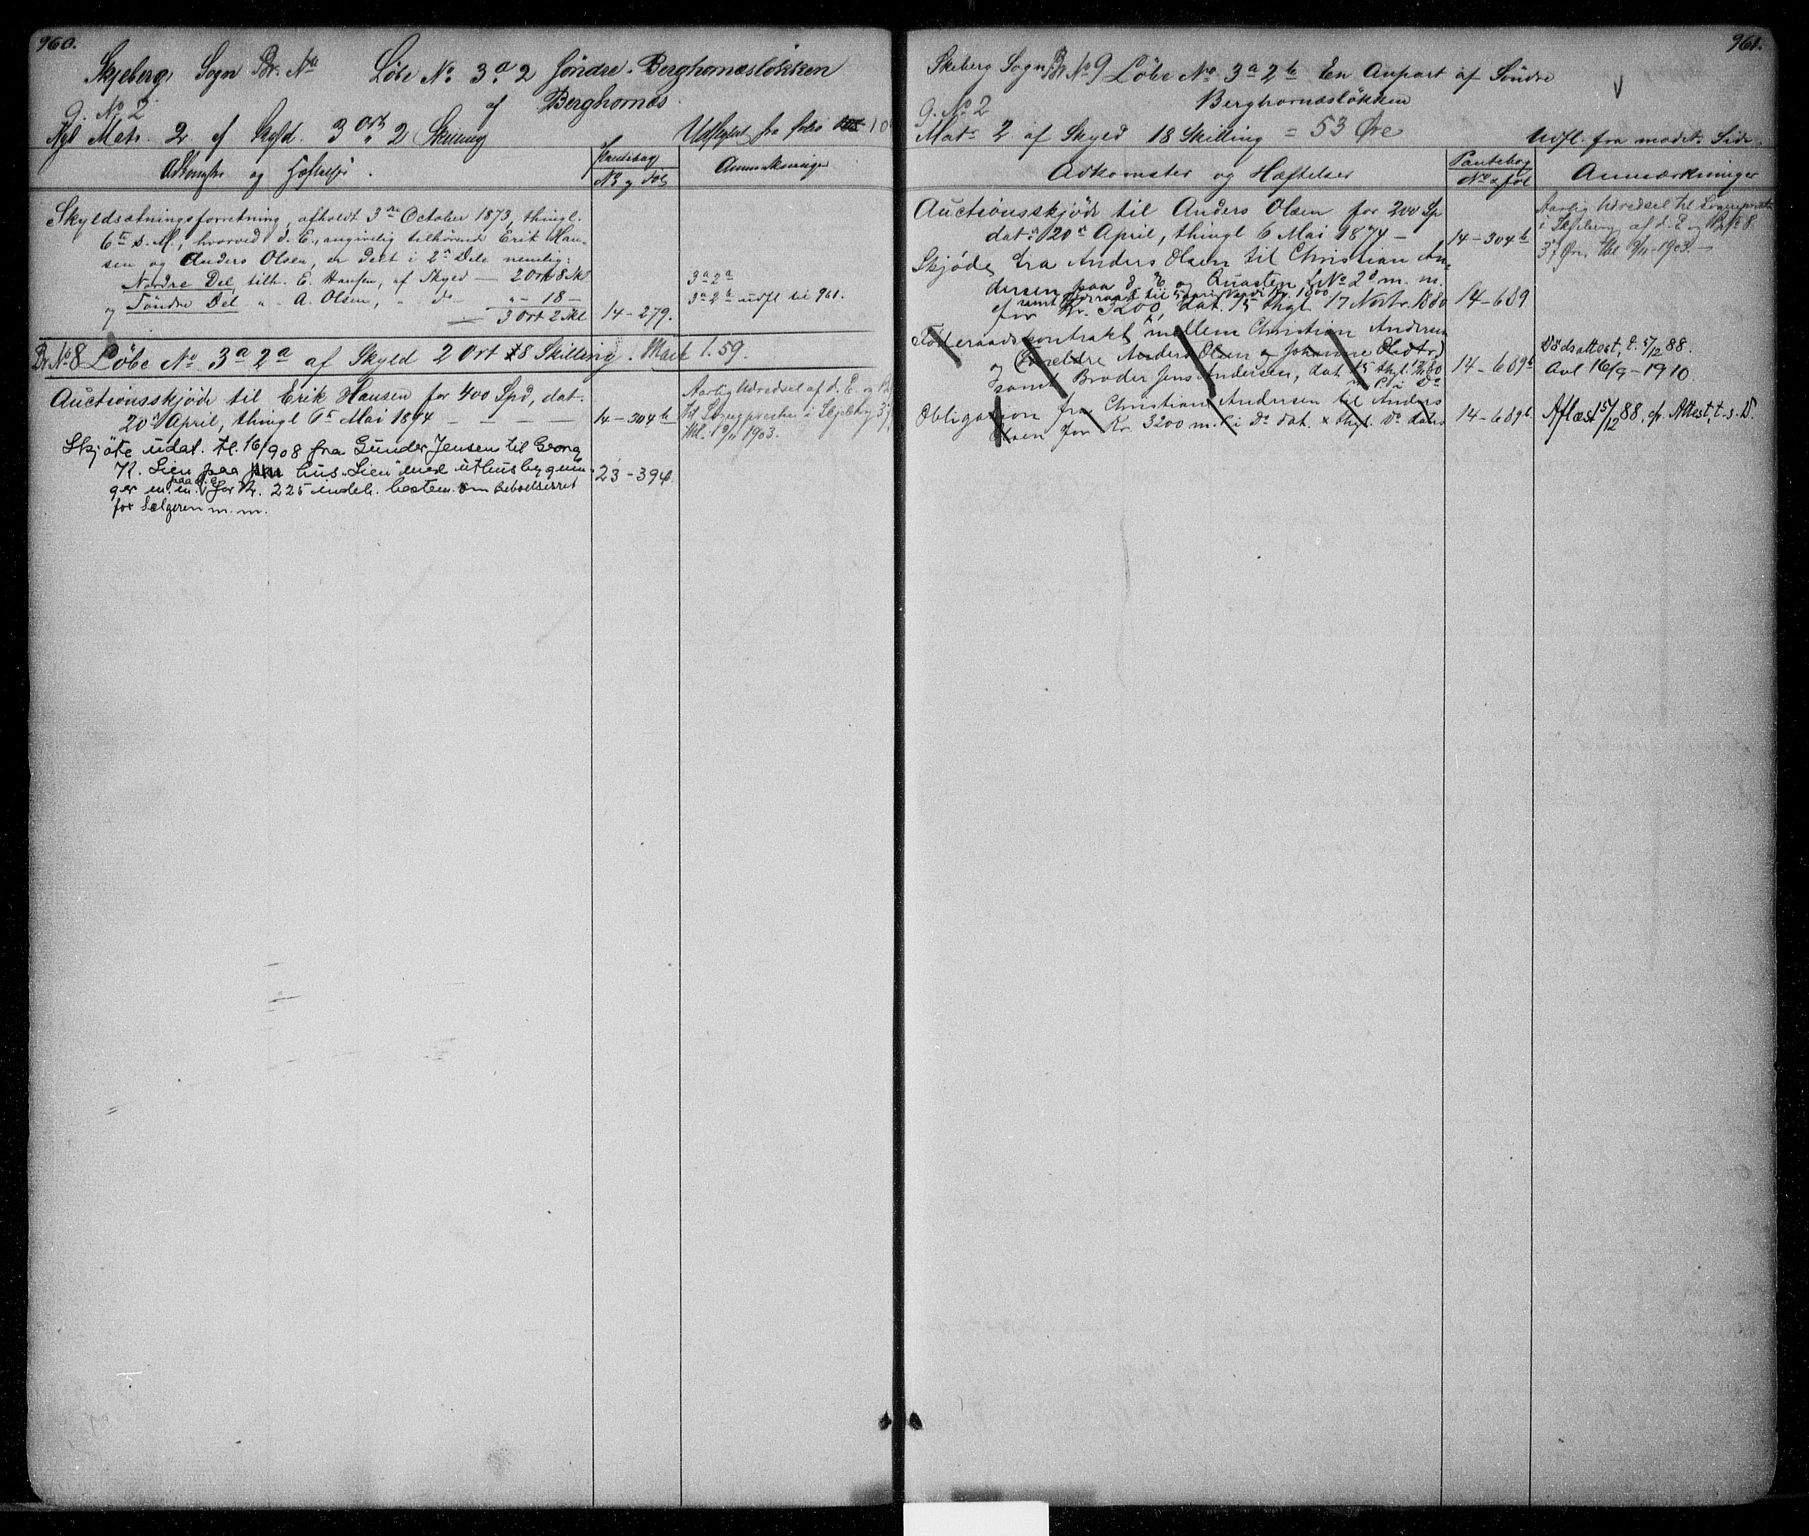 960.
Skjeberg Sogn Br. No Löbe No 3a 2 Söndre Berghornæsløkken
G. No 2 af Berghornæs.
Ngl Matr. 2 af Skyld 3 ort 2 Skilling Udskyldt fra folio 10
Adkomster og Hæftelser. Pantebog No og Fol Anmærkninger
Skyldsætningsforretning, afholdt 3die October 1873, thingl.
6te s. M., hvorved d. E., angivelig tilhørende Erik Han-
sen og Anders Olsen, er delt i 2de Dele nemlig:
Nordre Del, tilh. E. Hansen, af Skyld — 2 Ort 8 Skl 3a 2a
og Söndre Del " A. Olsen, " do " - 18 — 3a 2b udfl til 961.
3 Ort 2 Skl 14-279.
Br. No 8. Löbe No 3a 2a af Skyld 2 Ort 8 Skilling. Mark 1.59.
Auctionsskjøde til Erik Hansen for 400 Spd, dat. Aarlig Udredsel af d. E. og
20 April, thingl 6te Mai 1874 — — — — 14-304b til Sognepresten i Skjeberg 37
1903.
Skjøte udat. tl. 16/908 fra Gunder Jensen til Georg
K. Lien paa hus "Lien" med uthusbygnin-
ger m. m. paa d. E. for Kr. 225 indeh. bestem. om beboelsesret 23-394.
for Sælgeren m. m.
961.
Skeberg Sogn Br No 9 Löbe No 3a 2b En Anpart af Söndre
G. No 2 Berghornæsløkken
Matr 2 af Skyld 18 Skilling = 53 Øre Udfl. fra modst. Side.
Adkomster og Hæftelser Pantebog No & fol Anmærkninger
Auctionsskjøde til Anders Olsen for 200 Sp Aarlig Udredsel til Sognepresten
dat. 20de April, thingl 6 Mai 1874 — 14-304b i Skjeberg af d. E. og Br. No 8
37 Øre, 1903 —
Skjøde fra Anders Olsen til Christian An-
dersen paa d. E. og Qvasten L No 2d m. m.
samt Føderaad til 5 aarig Værdi Kr. 1800
for Kr. 3200, dat. 15 thgl. 17 Novbr. 1880 14-689
Föderaadskontrakt mellem Christian Andersen
og Forældre Anders Olsen og Johanne Oladtr) Dödsattest, t. 5/12 88.
samt Broder Jens Andersen, dat. 15 thgl. 17/11 80 14-689b Avl 16/9-1910.
Obligation fra Christian Andersen til Anders
Olsen for Kr. 3200 m. P. i Do dat. & thgl. Do dato 14-689b Aflæst 5/12 88. cfr. Attest, t. s. D.